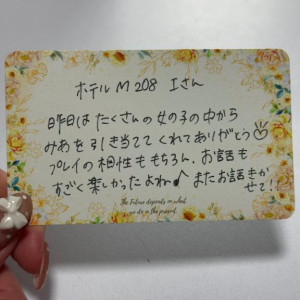 ホテルM 208 Iさん
昨日はたくさんの女の子の中から
みあを引き当ててくれてありがとう♡
プレイの相性ももちろん、お話も
すごく楽しかったよね♪ またお話きか
せて!!
The Future depends on what
we do in the present.